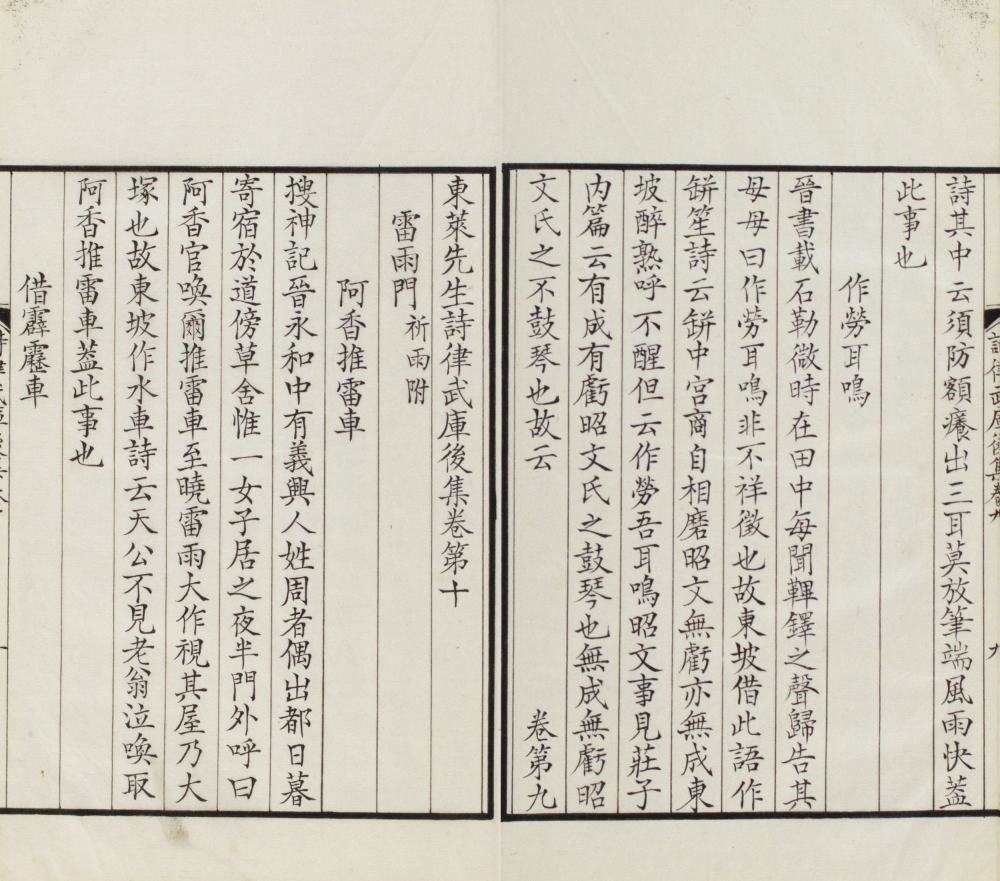 詩律武庫後集卷九
九
詩其中云須防額癢出三耳莫放筆端風雨快葢
此事也
作勞耳鳴
晉書載石勒微時在田中每聞鞞鐸之聲歸告其
母母曰作勞耳鳴非不祥徵也故東坡借此語作
缾笙詩云缾中宮商自相磨昭文無虧亦無成東
坡醉熟呼不醒但云作勞吾耳鳴昭文事見莊子
内篇云有成有虧昭文氏之鼓琴也無成無虧昭
文氏之不鼓琴也故云
卷第九
東萊先生詩律武庫後集卷第十
雷雨門 祈雨附
阿香推雷車
搜神記晉永和中有義興人姓周者偶出都日暮
寄宿於道傍草舍惟一女子居之夜半門外呼曰
阿香官喚爾推雷車至曉雷雨大作視其屋乃大
塚也故東坡作水車詩云天公不見老翁泣喚取
阿香推雷車葢此事也
借霹靂車